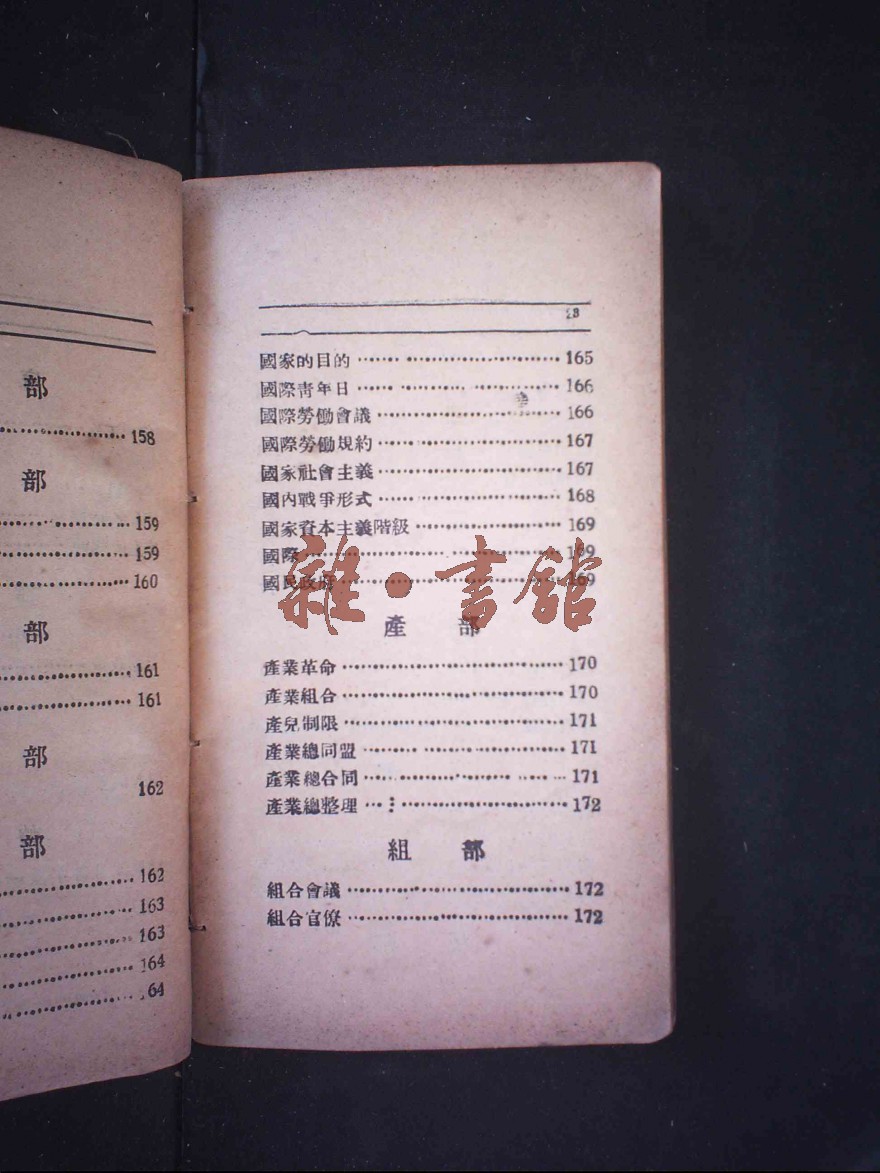 部
158
部
159
159
160
部
161
161
部
162
部
162
163
163
164
64
23
國家的目的 165
國際靑年日 166
國際勞働會議 166
國際勞働規約 167
國家社會主義 167
國內戰爭形式 168
國家資本主義階級 169
國際 169
國民政府 169
雜·書館
產 部
產業革命 170
產業組合 170
產兒制限 171
產業總同盟 171
產業總合同 171
產業總整理 172
組 部
組合會議 172
組合官僚 172